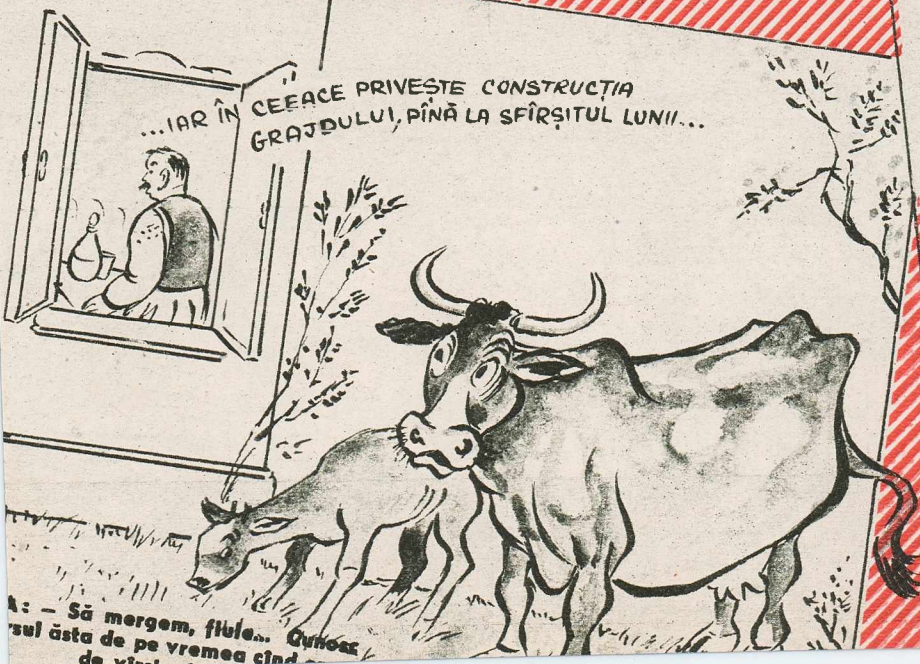 ...IAR ÎN CEEACE PRIVEȘTE CONSTRUCȚIA
GRAJDULUI, PÎNĂ LA SFÎRȘITUL LUNII...
– Să mergem, fiule... Cunosc
ăsta de pe vremea cînd
de